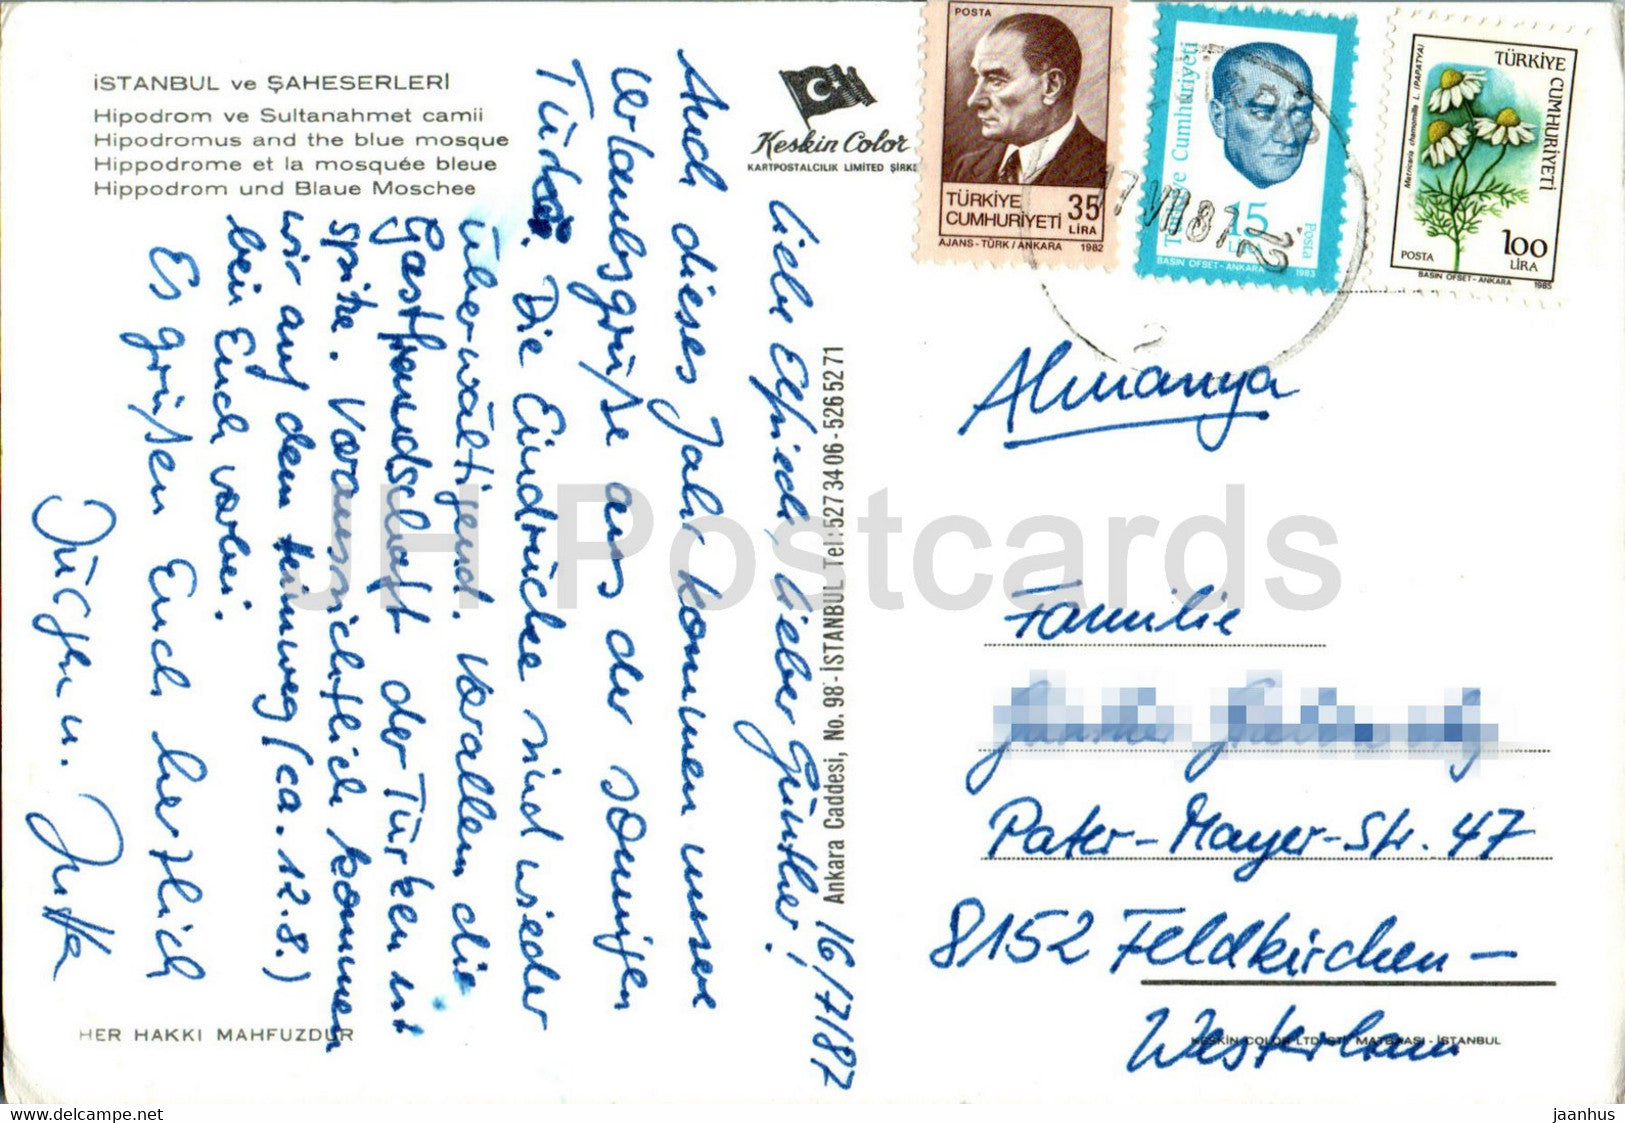 İSTANBUL ve ŞAHESERLERİ
Hipodrom ve Sultanahmet camii
Hipodromus and the blue mosque
Hippodrome et la mosquée bleue
Hippodrom und Blaue Moschee
Keskin Color
KARTPOSTALCILIK LIMITED ŞİRKE
16/7/87
Liebe Elfriede, lieber Günther!
Auch dieses Jahr kommen unsere
Urlaubsgrüße aus der sonnigen
Türkei. Die Eindrücke sind wieder
überwältigend. Vorallem die
Gastfreundschaft der Türken ist
spitze. Voraussichtlich kommen
wir auf dem Heimweg (ca. 12.8.)
bei Euch vorbei.
Es grüßen Euch herzlich
Jürgen u. Jutta
HER HAKKI MAHFUZDUR
Ankara Caddesi, No. 98-İSTANBUL Tel: 527 34 06 - 526 52 71
POSTA
TÜRKİYE
CUMHURİYETİ
35
LİRA
AJANS-TÜRK/ANKARA 1982
Türkiye Cumhuriyeti
15
Posta
BASIN OFSET-ANKARA 1983
17 VII 87 12
TÜRKİYE CUMHURİYETİ
Matricaria chamomilla L. (PAPATYA)
POSTA
100
LİRA
BASIN OFSET-ANKARA 1985
Almanya
Familie
Pater-Mayer-Str. 47
8152 Feldkirchen-
Westerham
KESKİN COLOR LTD. ŞTİ. MATBAASI - İSTANBUL
JH Postcards
www.delcampe.net
jaanhus